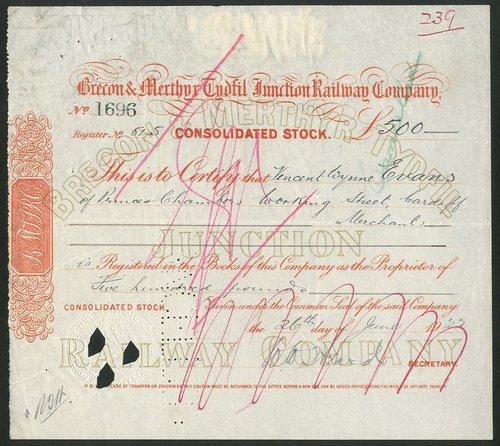 239
Brecon & Merthyr Tydfil Junction Railway Company,
No 1696
£500
Register No.
CONSOLIDATED STOCK.
BRECON & MERTHYR TYDFIL
This is to Certify that Vincent Wynne Evans
of Princes Chambers Working Street Cardiff
Merchant
JUNCTION
is Registered in the Books of this Company as the Proprietor of
Five hundred pounds
CONSOLIDATED STOCK. Given under the Common Seal of the said Company
the 26th day of June 1922
RAILWAY COMPANY
SECRETARY.
IN CASE OF TRANSFER OR OTHERWISE THIS COUPON MUST BE RETURNED TO THE OFFICE BEFORE A NEW ONE CAN BE ISSUED REPRESENTING THE WHOLE OR ANY PART THEREOF.